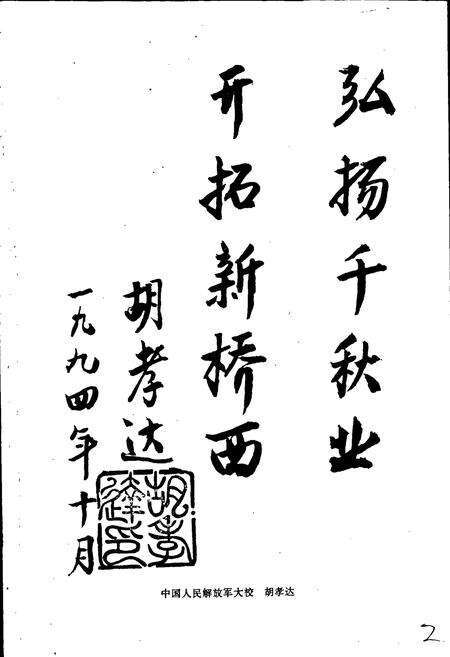 弘扬千秋业
开拓新桥西
胡孝达
一九九四年十月
胡孝達印
中国人民解放军大校 胡孝达
2